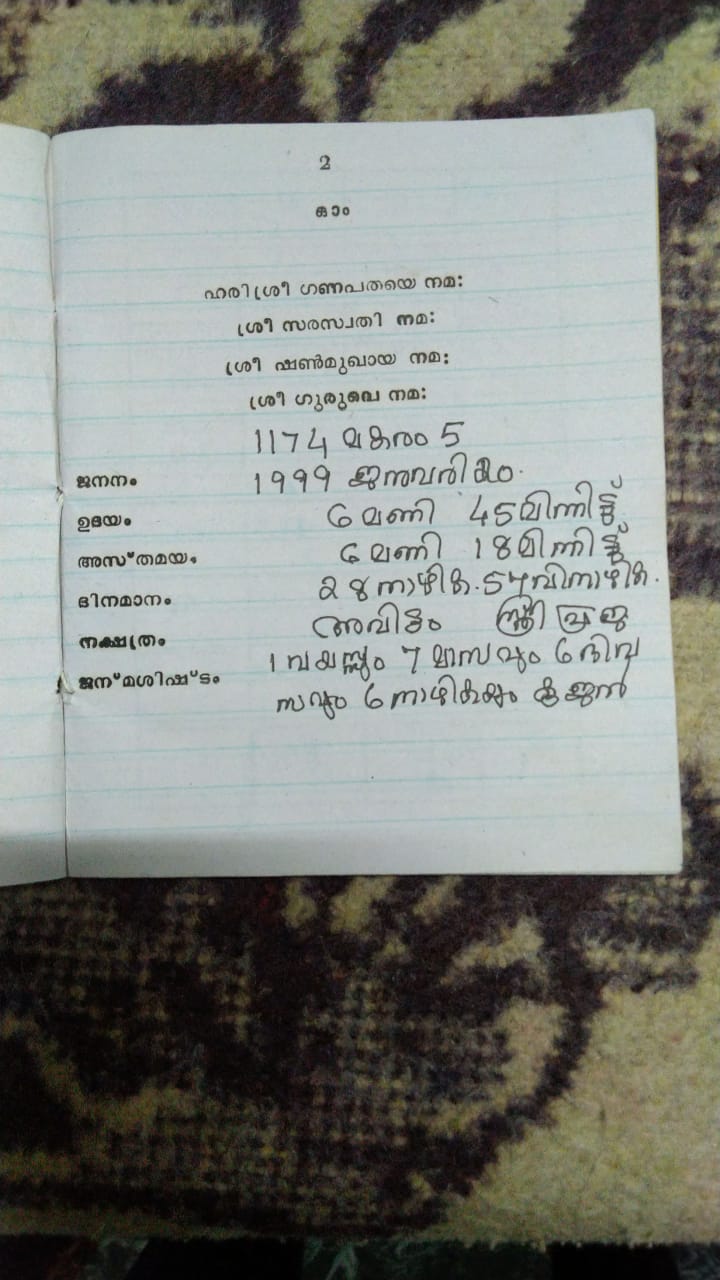 2
കാം
ഹരിശ്രീ ഗണപതയെ നമ:
ശ്രീ സരസ്വതി നമ:
ശ്രീ ഷൺമുഖായ നമ:
ശ്രീ ഗുരുവെ നമ:
1174 മകരം 5
ജനനം 1999 ജനുവരി
ഉദയം 6 മണി 45 മിനിട്ട്
അസ്തമയം 6 മണി 18 മിനിട്ട്
ദിനമാനം 28 നാഴിക. 54 വിനാഴിക.
നക്ഷത്രം അവിട്ടം സ്ത്രീ പ്രജ
ജന്മശിഷ്ടം 1 വയസ്സും 7 മാസവും 6 ദിവ
സവും 6 നാഴികയും കുജൻ